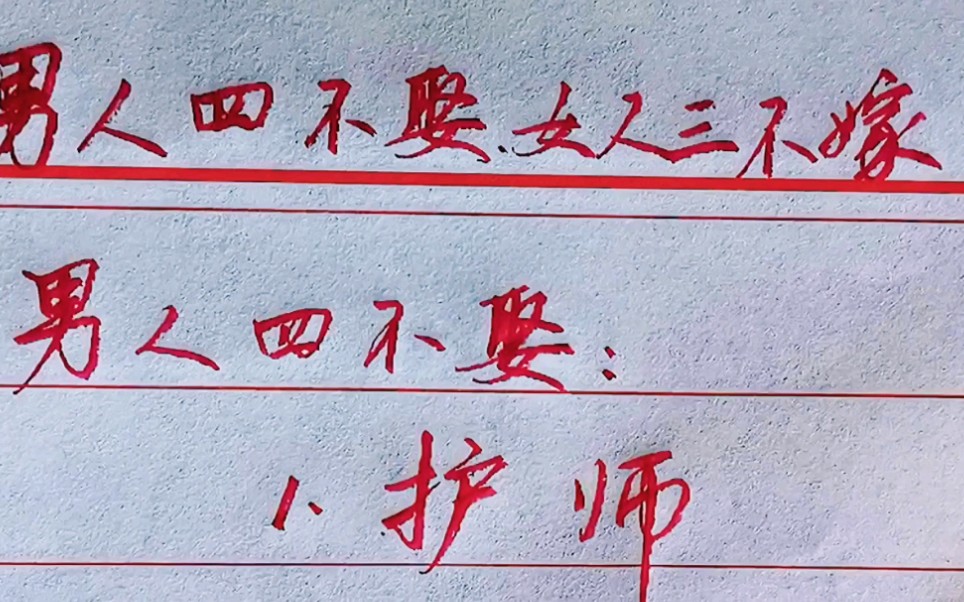 男人四不娶.女人三不嫁
男人四不娶:
1、护师